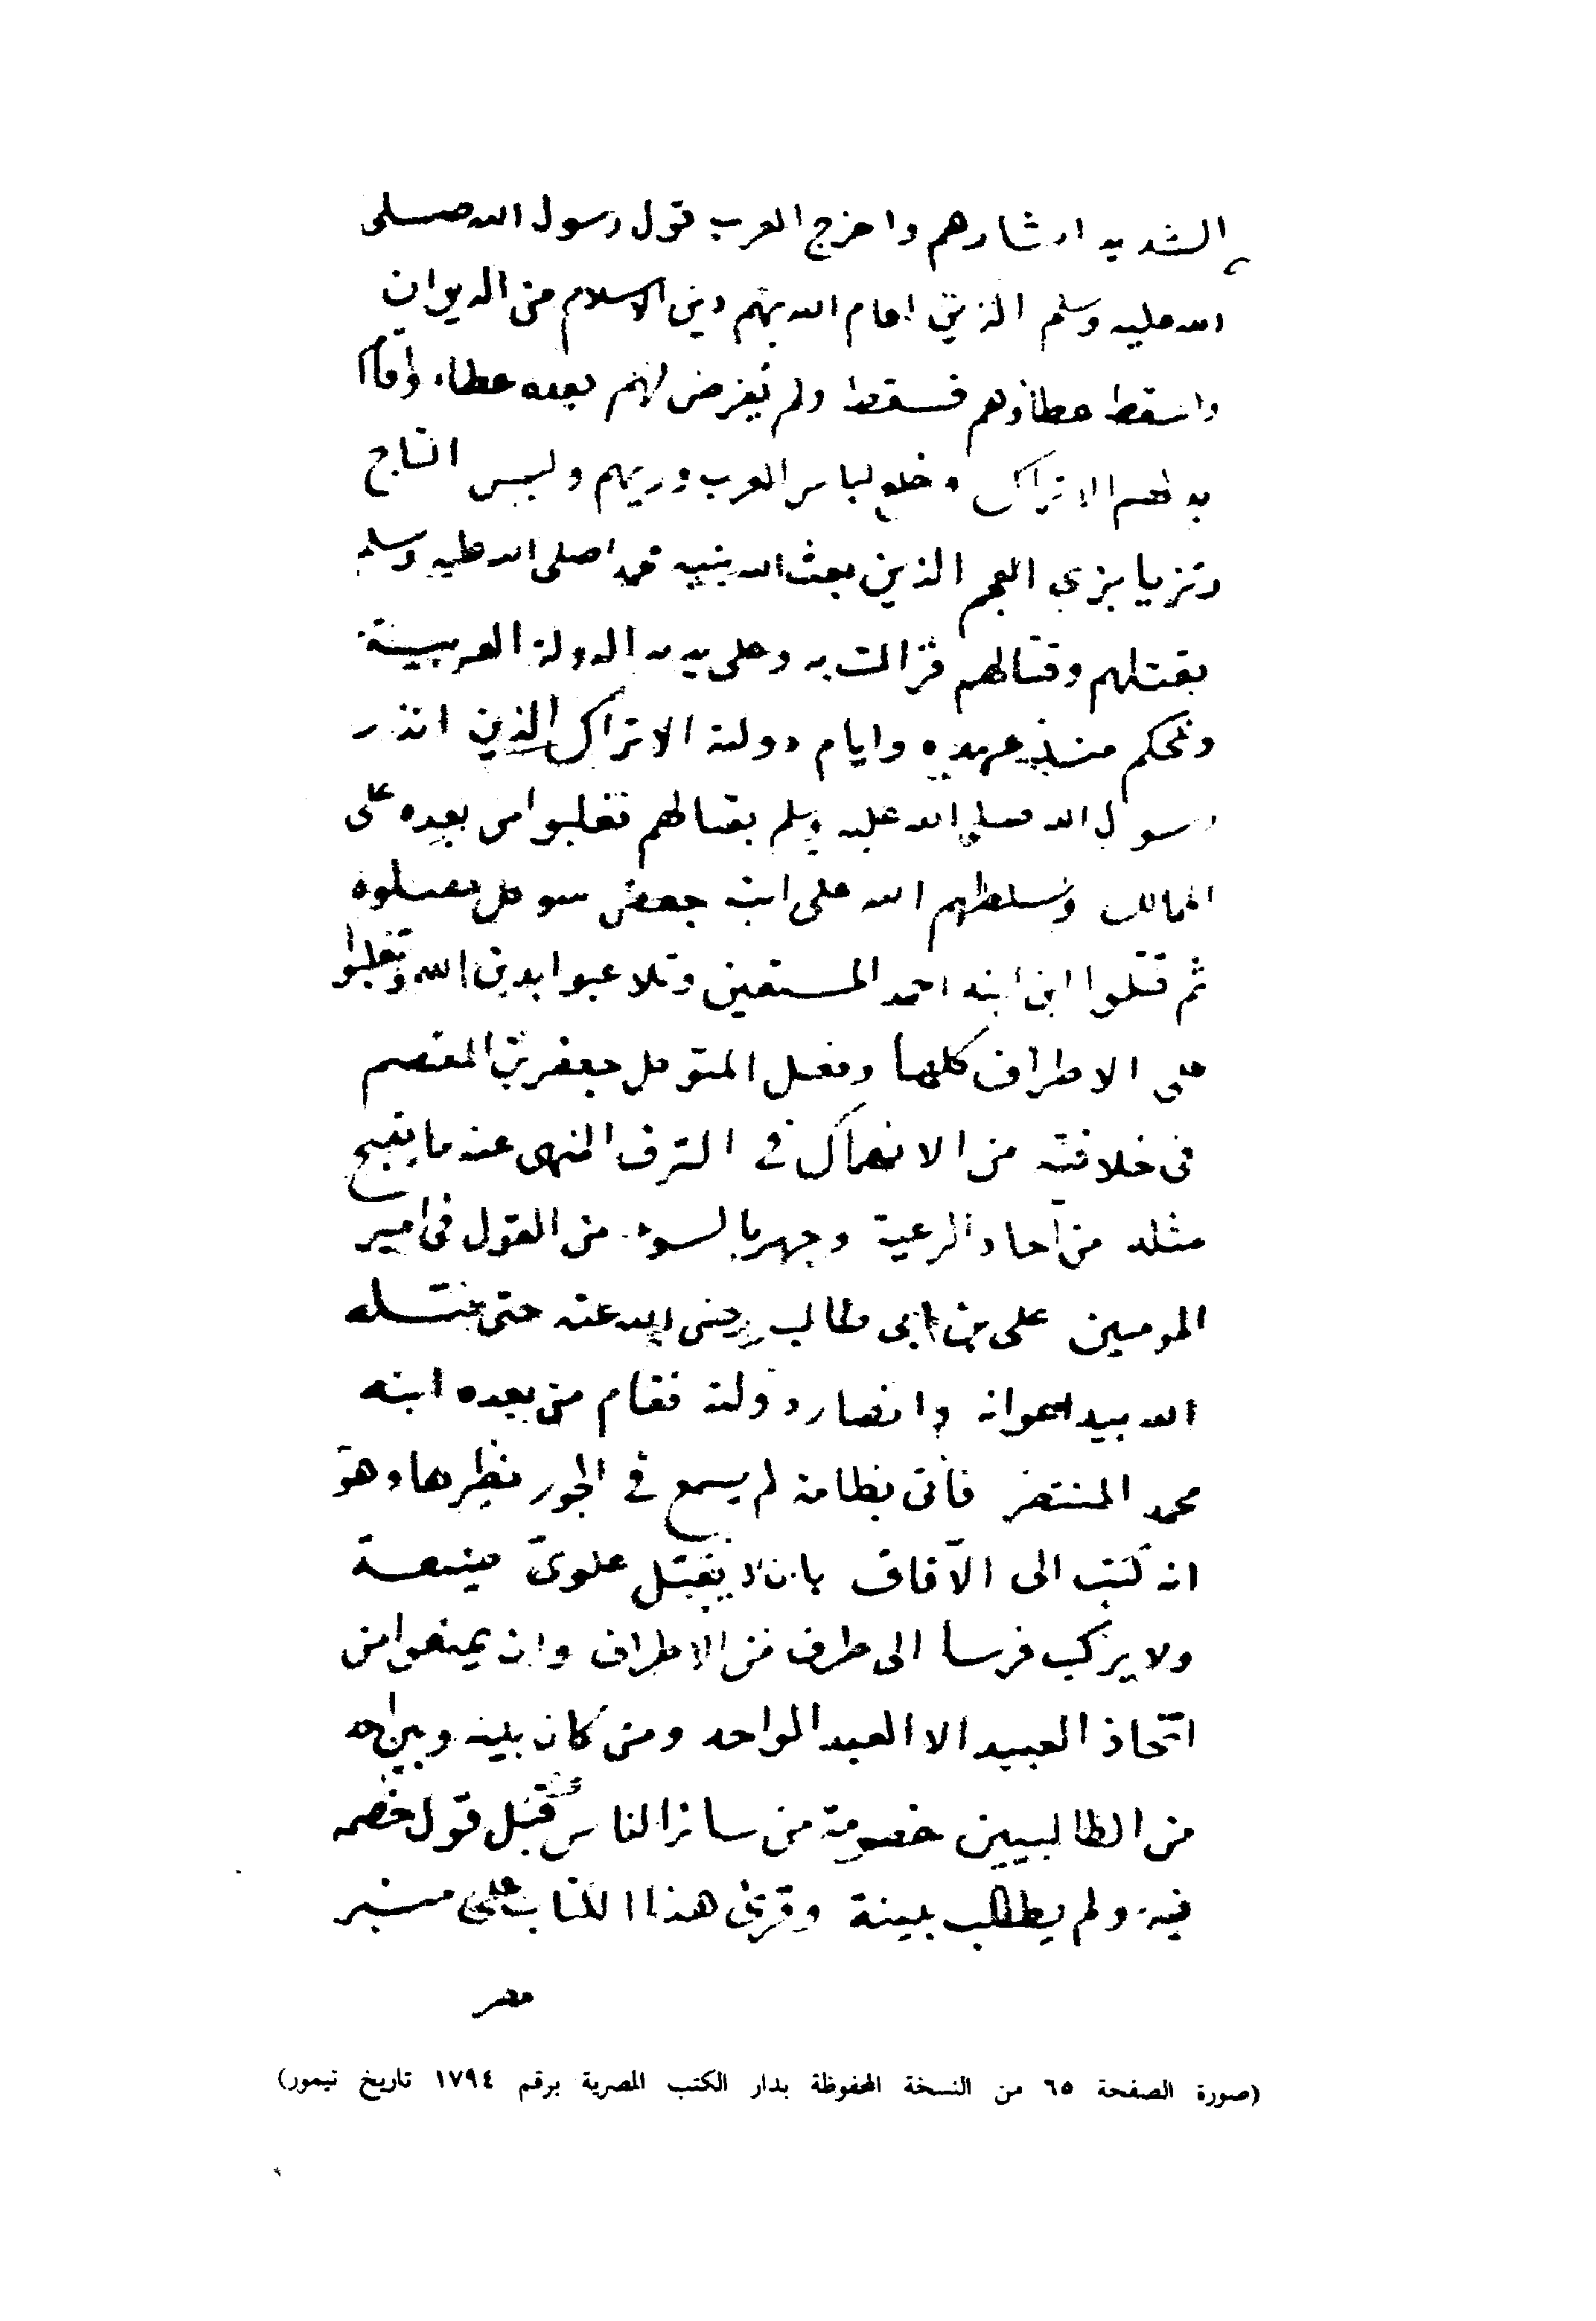 الشديد ادشارهم واخرج العرب قول رسول الله صلى
الله عليه وسلم الذين اقام الله بهم دين الاسلام من الديوان
واسقط عطاؤهم فسقط ولم يفرض لهم بعده عطاء واقام
بدلهم الاتراك وخلع لباس العرب وزيهم ولبس التاج
وتزيا بزي العجم الذين بعث الله بنبيه محمدا صلى الله عليه وسلم
بقتلهم وقتالهم فزالت به وعلى يديه الدولة العربية
وتحكم منذ عهده وايام دولته الاتراك الذين انذر
رسول الله صلى الله عليه وسلم بقتالهم فغلبوا من بعده على
الممالك وسلطهم الله على ابنه جعفر المتوكل فقتلوه
ثم قتلوا ابن ابنه احمد المستعين وتلاعبوا بدين الله وتغلبوا
على الاطراف كلها وفعل المتوكل جعفر بن المعتصم
في خلافته من الانهماك في الترف المنهى عنه ما يقبح
مثله من آحاد الرعية وجهر بالسوء من القول في امير
المومنين على بن ابى طالب رضى الله عنه حتى قتله
الله بيد اعوانه وانصار دولته فقام من بعده ابنه
محمد المنتصر فأتى بطامة لم يسمع في الجور بنظيرها وهو
انه كتب الى الآفاق بان لا يقبل علوى ضيعة
ولا يركب فرسا الى طرف من الاطراف وان يمنعوا من
اتخاذ العبيد الا العبد الواحد ومن كان بينه وبين احد
من الطالبيين خصومة من سائر الناس قبل قول خصمه
فيه ولم يطالب ببينة وقرئ هذا الكتاب على منبر
مصر
(صورة الصفحة ٦٥ من النسخة المحفوظة بدار الكتب المصرية برقم ١٧٩٤ تاريخ تيمور)